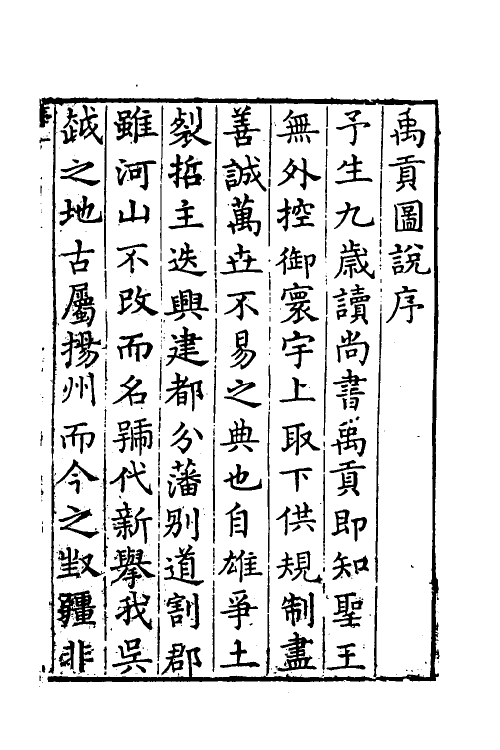 禹貢圖說序
予生九歲讀尚書禹貢即知聖王
無外控御寰宇上取下供規制盡
善誠萬卋不易之典也自雄爭土
裂哲主迭興建都分藩别道割郡
雖河山不改而名號代新舉我吳
越之地古屬揚州而今之㘴疆非